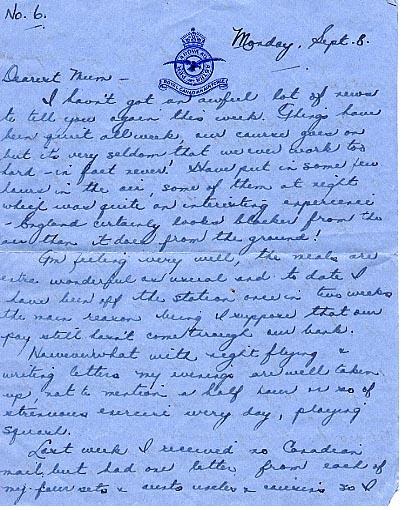 No. 6.
Monday, Sept. 8.
ROYAL CANADIAN AIR FORCE
Dearest Mum -
I havn't got an awful lot of news
to tell you again this week. Things have
been quiet all week, our course goes on
but it's very seldom that we ever work too
hard - in fact never! Have put in some few
hours in the air, some of them at night
which was quite an interesting experience
- England certainly looks blacker from the
air than it does from the ground!
Am feeling very well, the meals are
extra wonderful as usual and to date I
have been off the station once in two weeks
the main reason being I suppose that our
pay still hasn't come through our bank.
However what with night flying &
writing letters my evenings are well taken
up, not to mention a half hour or so of
strenuous exercise every day, playing
squash.
Last week I received no Canadian
mail but had one letter from each of
my four sets of aunts uncles & cousins so I